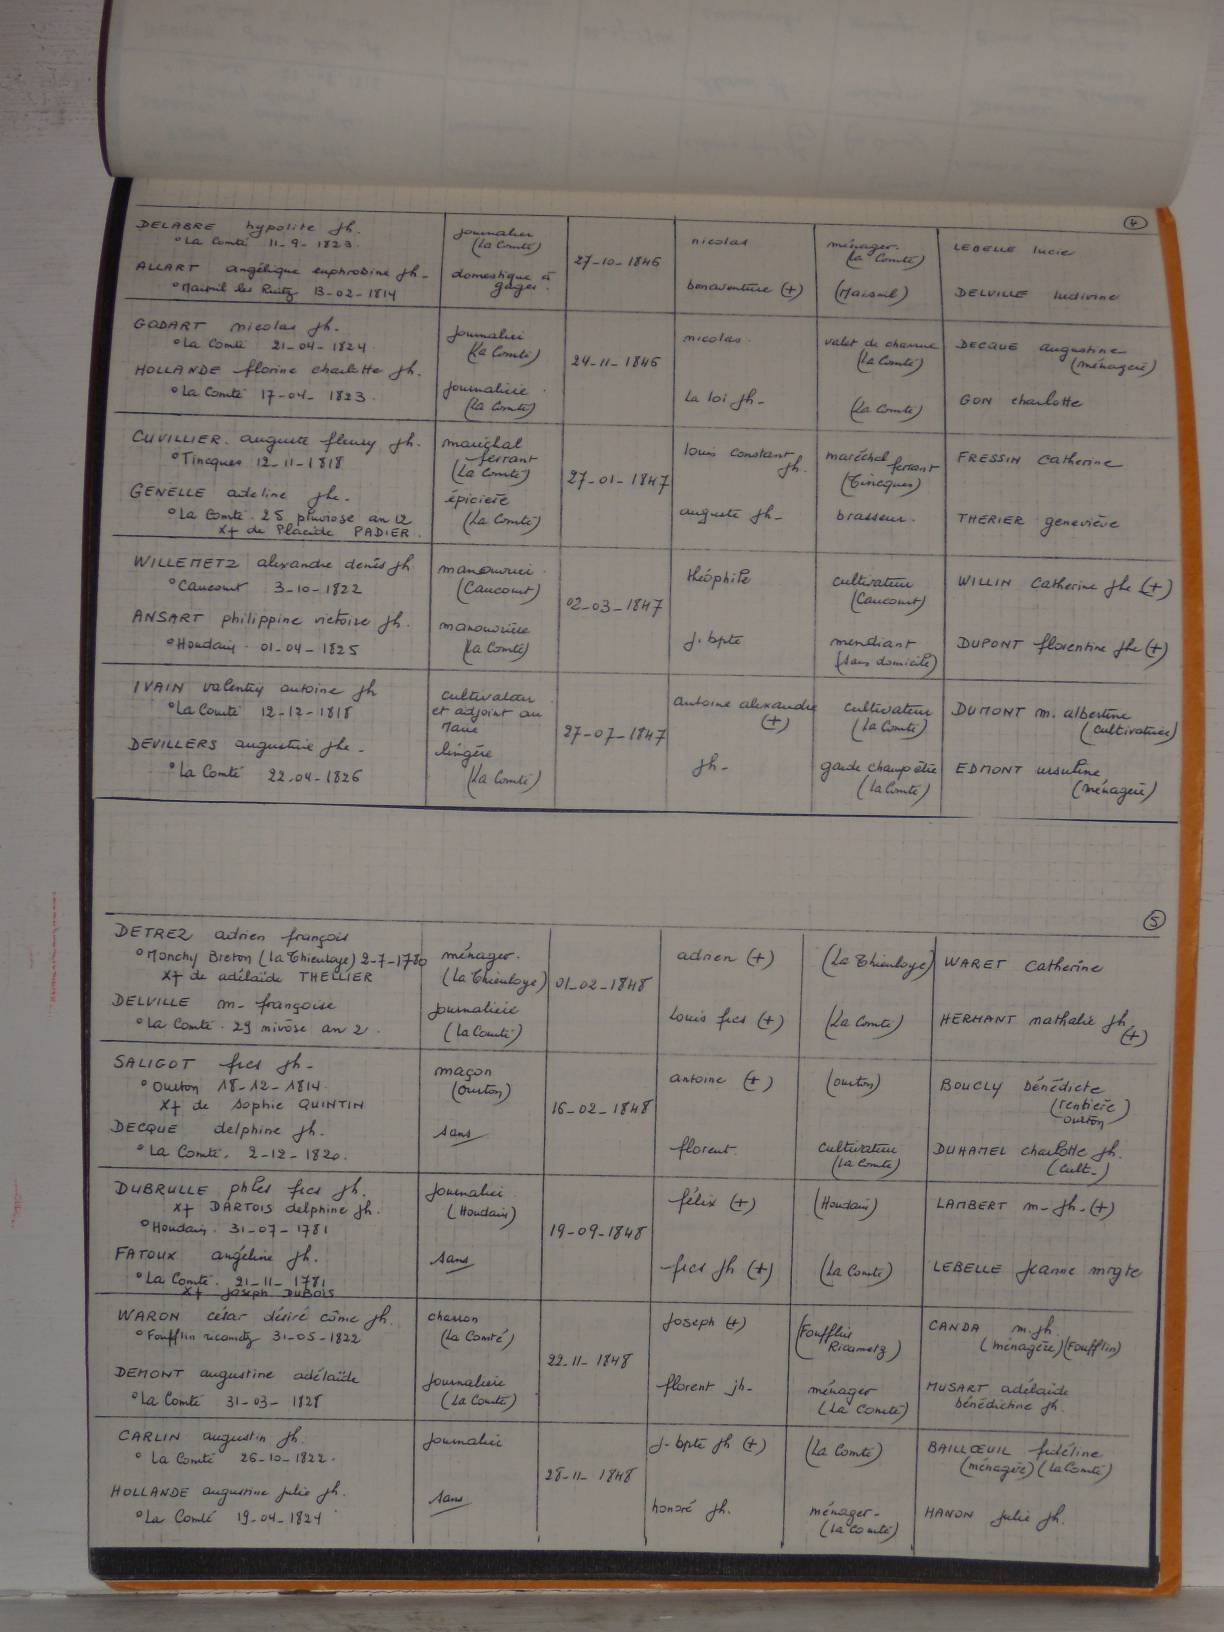 4
DELABRE hypolite jh. journalier nicolas ménager. LEBELLE lucie
° La Comté 11-9-1823. (La Comté) 27-10-1846 (La Comté)
ALLART angélique euphrosine jh- domestique à bonaventure (+) (Maisnil) DELVILLE ludivine
° Maisnil les Ruitz 13-02-1814 gages.
GODART nicolas jh. journalier nicolas. valet de charrue DECQUE augustine
° La Comté 21-04-1824. (La Comté) 24-11-1846 (La Comté) (ménagère)
HOLLANDE florine charlotte jh. journalière. La loi jh- (La Comté) GON charlotte
° La Comté 17-04-1823. (La Comté)
CUVILLIER. auguste fleury jh. maréchal louis constant maréchal FRESSIN Catherine
° Tincques 12-11-1818 ferrant jh. ferrant
(La Comté) 27-01-1847 (Tincques)
GENELLE adeline jhe. épicière auguste jh- brasseur. THERIER geneviève
° La Comté. 25 pluviose an 12 (La Comté)
x+ de Placide PADIER.
WILLEMETZ alexandre denis jh manouvrier. théophile cultivateur WILLIN Catherine jhe (+)
° Caucourt 3-10-1822 (Caucourt) 02-03-1847 (Caucourt)
ANSART philippine victoire jh. manouvrière j. bpte mendiant DUPONT florentine jhe (+)
° Houdain. 01-04-1825 (La Comté) (sans domicile)
IVAIN valentin antoine jh cultivateur antoine alexandre cultivateur DUMONT m. albertine
° La Comté 12-12-1818 et adjoint au (+) (La Comté) (cultivatrice)
Maire 27-07-1847
DEVILLERS augustine jhe- lingère jh- garde champêtre EDMONT ursuline
° La Comté 22.04-1826 (La Comté) (La Comté) (ménagère)
5
DETREZ adrien françois ménager. adrien (+) (La Thieuloye) WARET Catherine
° Monchy Breton (La Thieuloye) 2-7-1780 (La Thieuloye) 01-02-1848
x+ de adélaïde THELLIER
DELVILLE m- françoise journalière Louis fcs (+) (La Comté) HERMANT nathalie jh.
° La Comté. 29 nivôse an 2. (La Comté) (+)
SALIGOT fcs jh- maçon antoine (+) (Ourton) BOUCLY Bénédicte
° Ourton 18-12-1814. (Ourton) (rentière)
x+ de Sophie QUINTIN 16-02-1848 Ourton
DECQUE delphine jh. sans florent. cultivateur DUHAMEL charlotte jh.
° La Comté. 2-12-1820. (La Comté) (cult-)
DUBRULLE phles fcs jh. journalier félix (+) (Houdain) LAMBERT m-jh-(+)
x+ DARTOIS delphine jh. (Houdain)
° Houdain. 31-07-1781 19-09-1848
FATOUX angéline jh. sans fcs jh (+) (La Comté) LEBELLE jeanne mrgte
° La Comté. 21-11-1781
x+ Joseph DUBOIS
WARON césar désiré côme jh. charron Joseph (+) (Foufflin CANDA m.jh.
° Foufflin ricametz 31-05-1822 (La Comté) Ricametz) (ménagère) (Foufflin)
22-11-1848
DEMONT augustine adélaïde journalière florent jh- ménager MUSART adélaïde
° La Comté 31-03-1828 (La Comté) (La Comté) bénédictine jh.
CARLIN augustin jh. journalier j-bpte jh (+) (La Comté) BAILLŒUIL fidéline
° La Comté 26-10-1822. 28-11-1848 (ménagère) (La Comté)
HOLLANDE augustine julie jh. sans honoré jh. ménager- HANON julie jh.
° La Comté 19-04-1824 (La Comté)